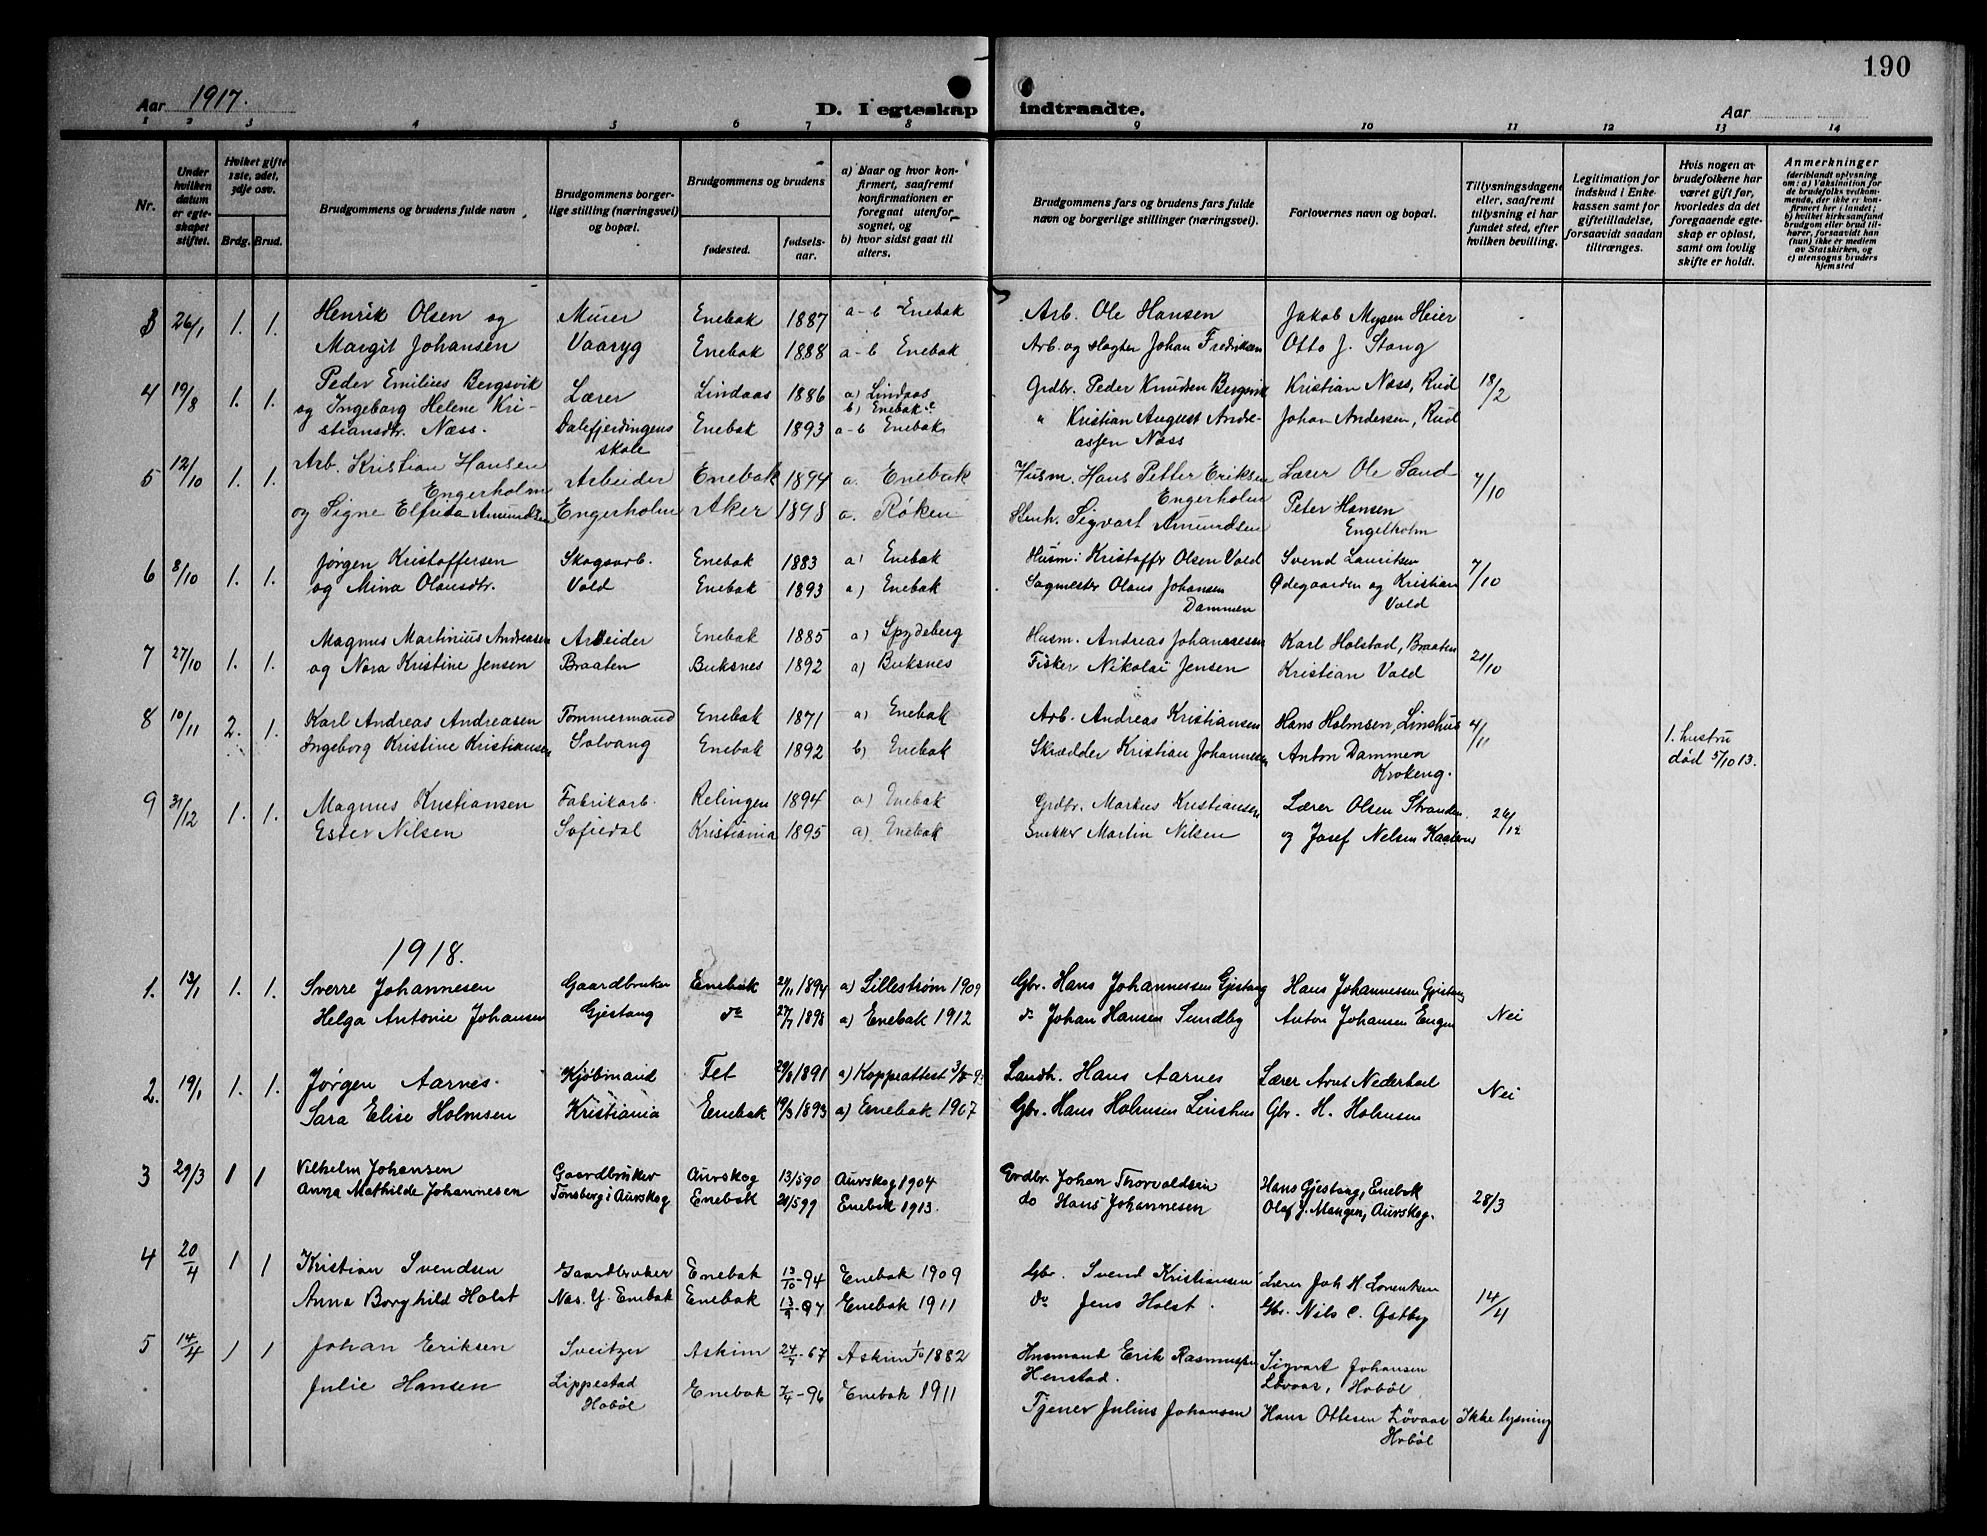 190
Aar 1917. D. I egteskap indtraadte. Aar
1 2 3 4 5 6 7 8 9 10 11 12 13 14
Nr.
Under hvilken datum er egteskapet stiftet.
Hvilket gifte 1ste, 2det, 3dje osv.
Brdg. Brud.
Brudgommens og brudens fulde navn
Brudgommens borgerlige stilling (næringsvei) og bopæl.
Brudgommens og brudens
fødested. fødselsaar.
a) Naar og hvor konfirmert, saafremt konfirmationen er foregaat utenfor sognet, og
b) hvor sidst gaat til alters.
Brudgommens fars og brudens fars fulde navn og borgerlige stillinger (næringsvei).
Forlovernes navn og bopæl.
Tillysningsdagene eller, saafremt tillysning ei har fundet sted, efter hvilken bevilling.
Legitimation for indskud i Enkekassen samt for giftetilladelse, forsaavidt saadan tiltrænges.
Hvis nogen av brudefolkene har været gift før, hvorledes da det foregaaende egteskap er opløst, samt om lovlig skifte er holdt.
Anmerkninger (deriblandt oplysning om: a) Vaksination for de brudefolks vedkommende, der ikke er konfirmert her i landet; b) hvilket kirkesamfund brudgom eller brud tilhører, forsaavidt han (hun) ikke er medlem av Statskirken, og c) utensogns bruders hjemsted
3 26/1 1. 1. Henrik Olsen og Murer Enebak 1887 a-b Enebak Arb. Ole Hansen Jakob Mysen Heier
Margit Johansen Vaaryg Enebak 1888 a-b Enebak Arb. og slagter Johan Fredriksen Otto J. Stang
4 19/8 1. 1. Peder Emilius Bergsvik Lærer Lindaas 1886 a) Lindaas Grdbr. Peder Knudsen Bergsvik Kristian Næss, Rud 18/2
og Ingeborg Helene Kri- b) Enebak
stiansdtr. Næss. Dalefjerdingens Enebak 1893 a-b Enebak " Kristian August Andre- Johan Andersen, Rud
skole assen Næss
5 12/10 1. 1. Arb. Kristian Hansen Arbeider Enebak 1894 a. Enebak Husm. Hans Petter Eriksen Lærer Ole Sand 7/10
Engerholm Engerholm Peter Hansen
og Signe Elfrida Amundsen Engerholm Aker 1898 a. Røken Sigvart Amundsen Engelholm
6 8/10 1. 1. Jørgen Kristoffersen Skogsarb. Enebak 1883 a) Enebak Husm. Kristoffer Olsen Vold Svend Lauritsen 7/10
og Mina Olausdtr. Vold Enebak 1893 a) Enebak Sagmester Olaus Johansen Ødegaarden og Kristian
Dammen Vold
7 27/10 1. 1. Magnus Martinius Andreasen Arbeider Enebak 1885 a) Spydeberg Husm. Andreas Johannessen Karl Holstad, Braaten 21/10
og Nora Kristine Jensen Braaten Buksnes 1892 a) Buksnes Fisker Nikolai Jensen Kristian Vold
8 10/11 2. 1. Karl Andreas Andreasen Tømmermand Enebak 1871 a) Enebak Arb. Andreas Kristiansen Hans Holmsen, Linshus 4/11 1. hustru
Ingeborg Kristine Kristiansen Solvang Enebak 1892 b) Enebak Skrædder Kristian Johannessen Anton Dammen død 5/10 13.
Krokeng.
9 31/12 1. 1. Magnus Kristiansen Fabrikarb. Relingen 1894 a) Enebak Grdbr. Markus Kristiansen Lærer Olsen Stranden 26/12
Ester Nilsen Sofiedal Kristiania 1895 a) Enebak Snekker Martin Nilsen og Josef Nelsen
1918.
1. 13/1 1. 1. Sverre Johannesen Gaardbruker Enebak 1894 a) Lillestrøm 1909 Gbr. Hans Johannessen Gjestang Hans Johannessen Gjestang
Helga Antonie Johansen Gjestang do 27/7 1898 a) Enebak 1912 do Johan Hansen Sundby Anton Johansen Engen Nei
2. 19/1 1. 1. Jørgen Aarnes. Kjøbmand Fet 1891 a) Koppeattest Landh. Hans Aarnes Lærer Arnt Nederhoel Nei
Sara Elise Holmsen Kristiania Enebak 19/3 1893 a) Enebak 1907 Gbr. Hans Holmsen Linshus Gbr. H. Holmsen
3 29/3 1 1 Vilhelm Johansen Gaardbruker Aurskog 13/5 90 Aurskog 1904 Grdbr. Johan Thorvaldsen Hans Gjestang, Enebak 28/3
Anna Mathilde Johannesen Tønsberg i Aurskog Enebak 21/5 99 Enebak 1913. do Hans Johannesen Olaf J. Mangen, Aurskog.
4 20/4 1 1 Kristian Svendsen Gaardbruker Enebak 13/10-94 Enebak 1909 Gbr. Svend Kristiansen Lærer Joh M Lorentzen 14/4
Anna Borghild Holst Næs. Y. Enebak Enebak 13/9-97 Enebak 1911 do Jens Holst. Gbr. Nils C. Østby
5 14/4 1 1 Johan Eriksen Sveitzer Askim 24/7-67 Askim 1/10 1882 Husmand Erik Rasmussen Sigvart Johansen
Henstad. Løvaas, Hobøl
Julie Hansen Lippestad Enebak 7/4-96 Enebak 1911 Tjener Julius Johansen Hans Ottesen Løvaas Ikke lysning
Hobøl Hobøl